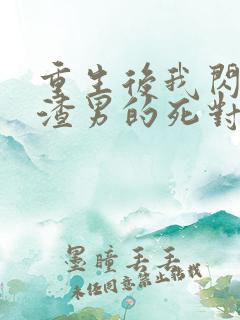 重生後我閃
渣男的死對
墨瞳丢丢
未经同意禁止转载